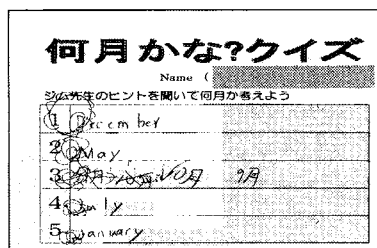 何月かな?クイズ
Name (
ジム先生のヒントを聞いて何月か考えよう
1 December
2 May
3 10月 9月
4 July
5 January